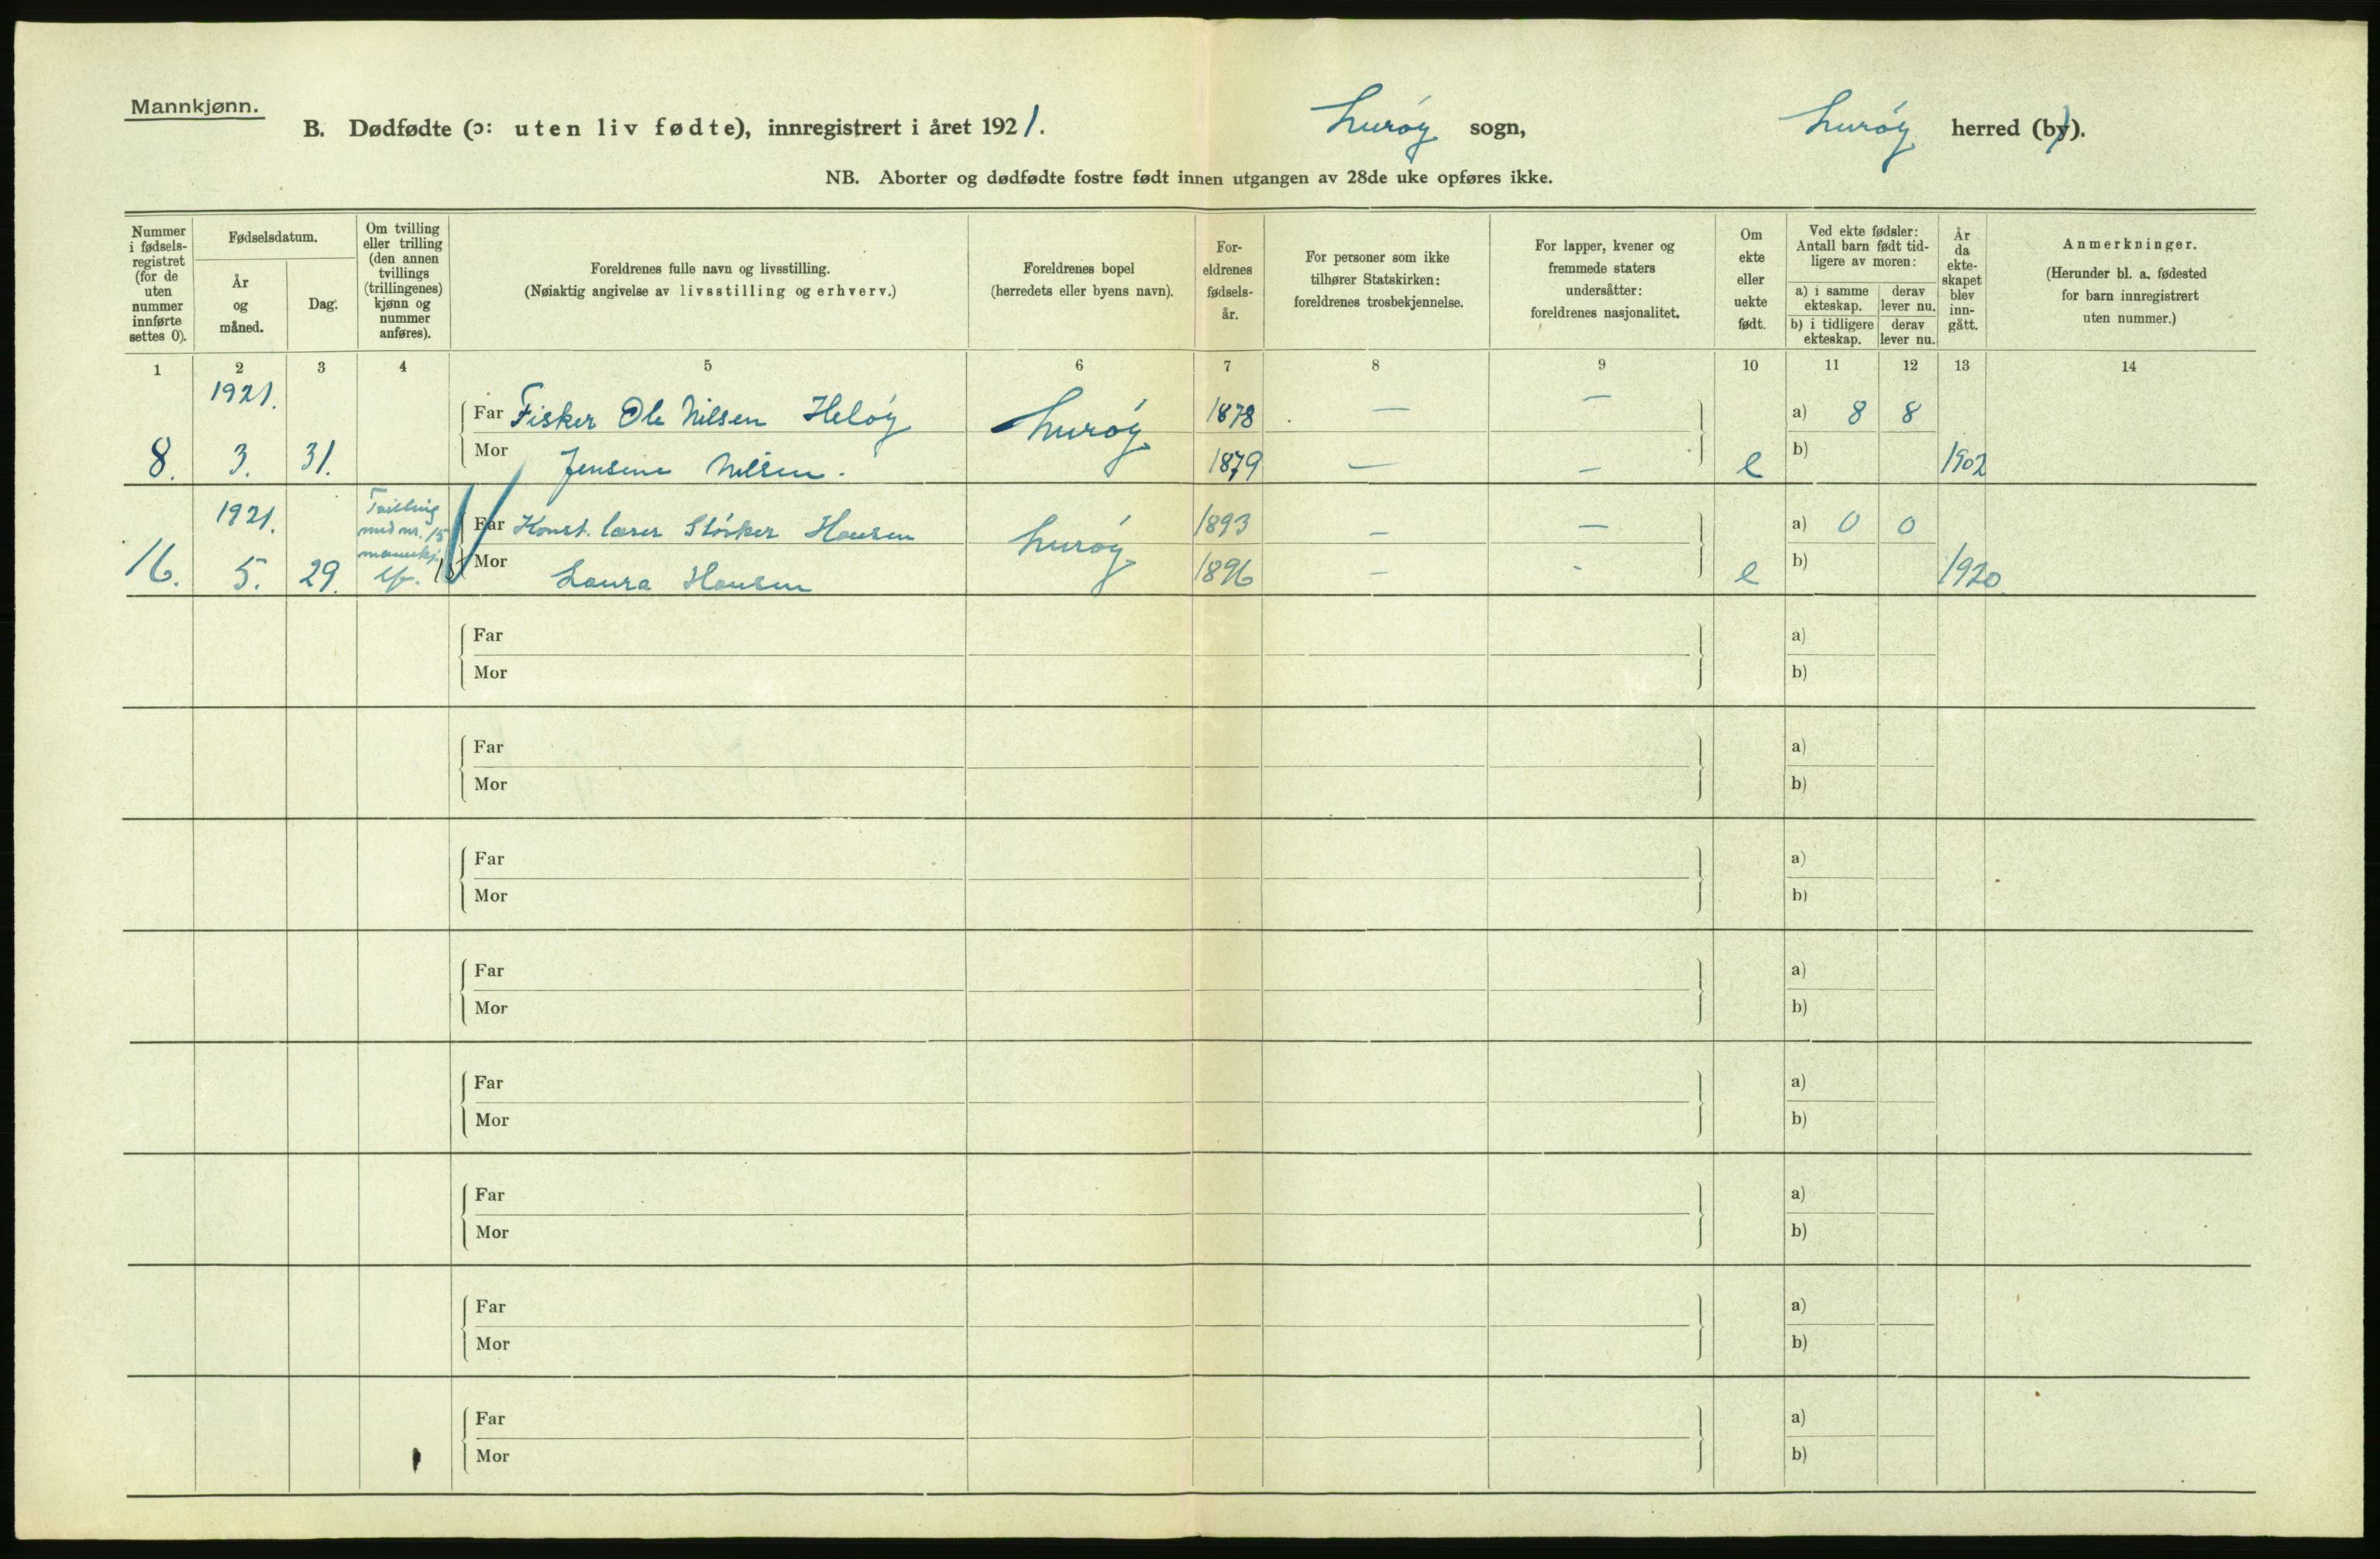 Mannkjønn.
B. Dødfødte (ɔ: uten liv fødte), innregistrert i året 1921. Lurøy sogn, Lurøy herred (by).
NB. Aborter og dødfødte fostre født innen utgangen av 28de uke opføres ikke.
Nummer i fødsels- registret (for de uten nummer innførte settes 0).
Fødselsdatum.
År og måned.
Dag.
Om tvilling eller trilling (den annen tvillings (trillingenes) kjønn og nummer anføres).
Foreldrenes fulle navn og livsstilling.
(Nøiaktig angivelse av livsstilling og erhverv.)
Foreldrenes bopel
(herredets eller byens navn).
For- eldrenes fødsels- år.
For personer som ikke tilhører Statskirken: foreldrenes trosbekjennelse.
For lapper, kvener og fremmede staters undersåtter: foreldrenes nasjonalitet.
Om ekte eller uekte født.
Ved ekte fødsler: Antall barn født tid- ligere av moren:
a) i samme ekteskap. derav lever nu.
b) i tidligere ekteskap. derav lever nu.
År da ekte- skapet blev inn- gått.
Anmerkninger.
(Herunder bl. a. fødested for barn innregistrert uten nummer.)
1 2 3 4 5 6 7 8 9 10 11 12 13 14
1921.
Far Fisker Ole Nilsen Heløy Lurøy 1878 — — a) 8 8
8. 3. 31. Mor Jensine Nilsen. 1879 — — e b) 1902
1921. Tvilling med nr. 15 mannkj.
Far Konst. lærer Størker Hansen Lurøy 1893 — — a) 0 0
16. 5. 29. Mor Laura Hansen 1896 — - e b) 1920.
Far a)
Mor b)
Far a)
Mor b)
Far a)
Mor b)
Far a)
Mor b)
Far a)
Mor b)
Far a)
Mor b)
Far a)
Mor b)
Far a)
Mor b)